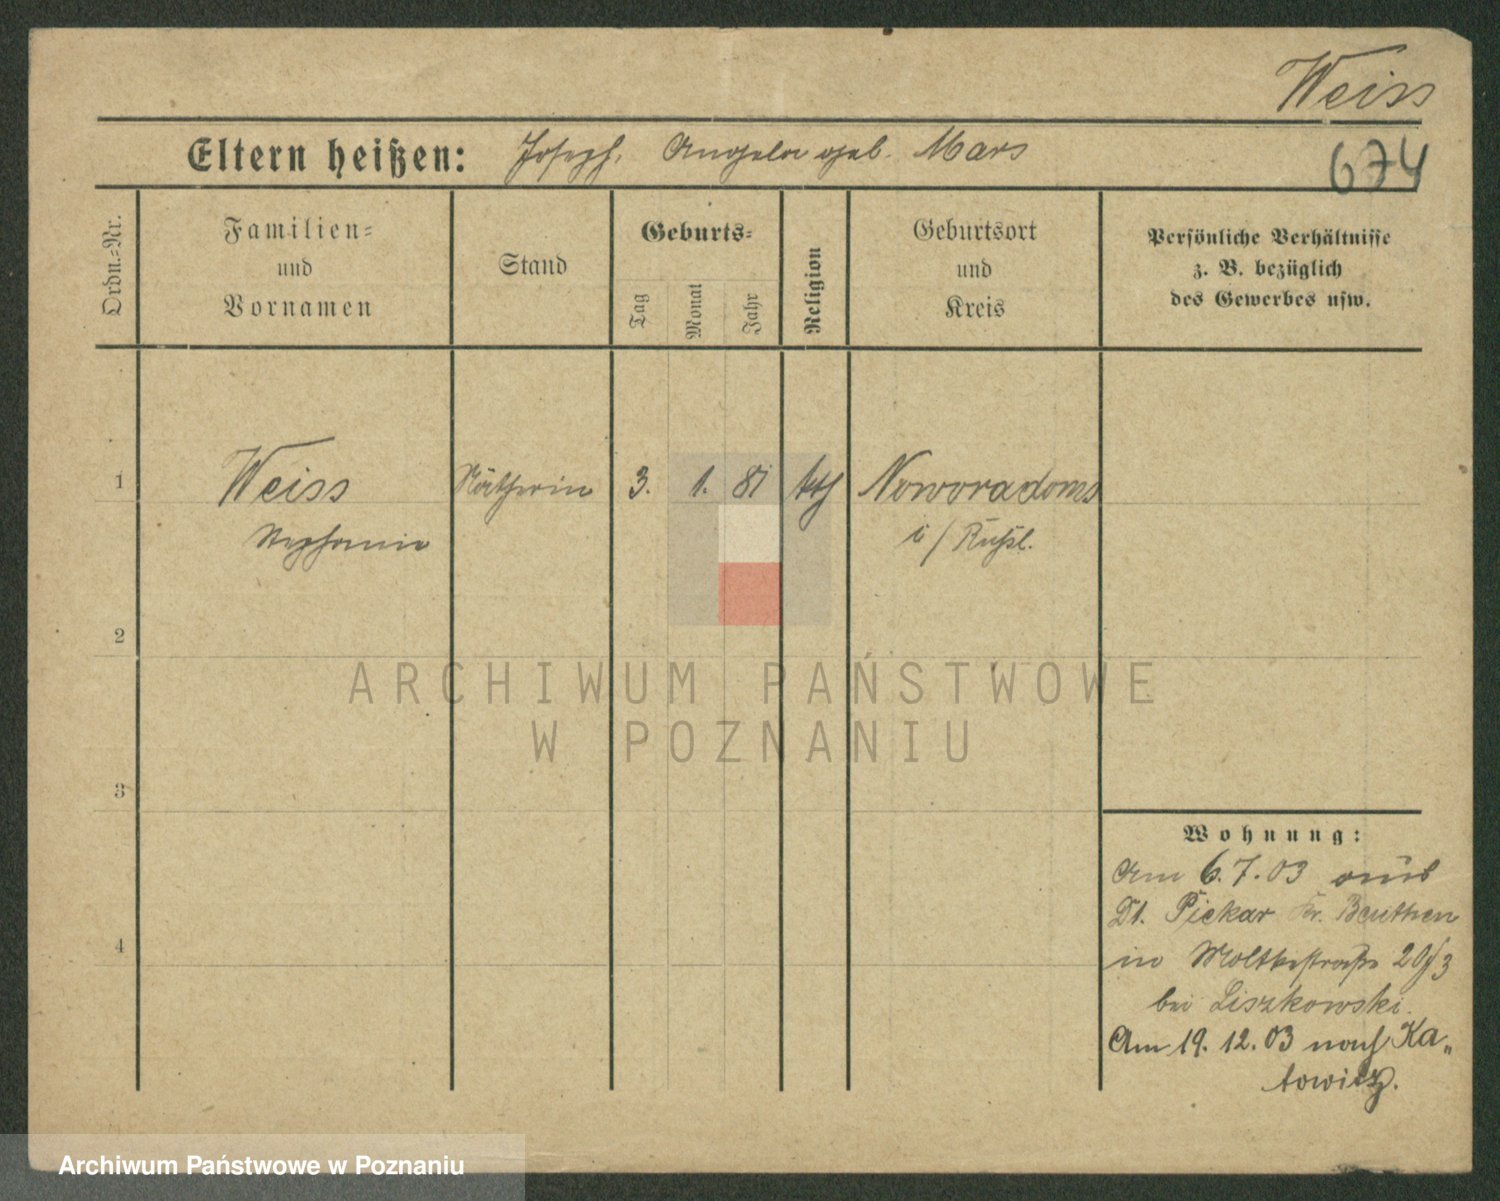 Weiss
Eltern heißen: Joseph, Angela geb. Mars
674
Ordn.=Nr.
Familien=
und
Vornamen
Stand
Geburts=
Tag
Monat
Jahr
Religion
Geburtsort
und
Kreis
Persönliche Verhältnisse
z. B. bezüglich
des Gewerbes usw.
1
Weiss Nätherin 3. 1. 81 kth Noworadoms
Stephanie i/Rußl.
2
ARCHIWUM PAŃSTWOWE
W POZNANIU
3
Wohnung:
Am 6.7.03 aus
Dt. Piekar Kr. Beuthen
4
in Moltkestraße 20/3
bei Liszkowski.
Am 19.12.03 nach Ka„
towitz.
Archiwum Państwowe w Poznaniu